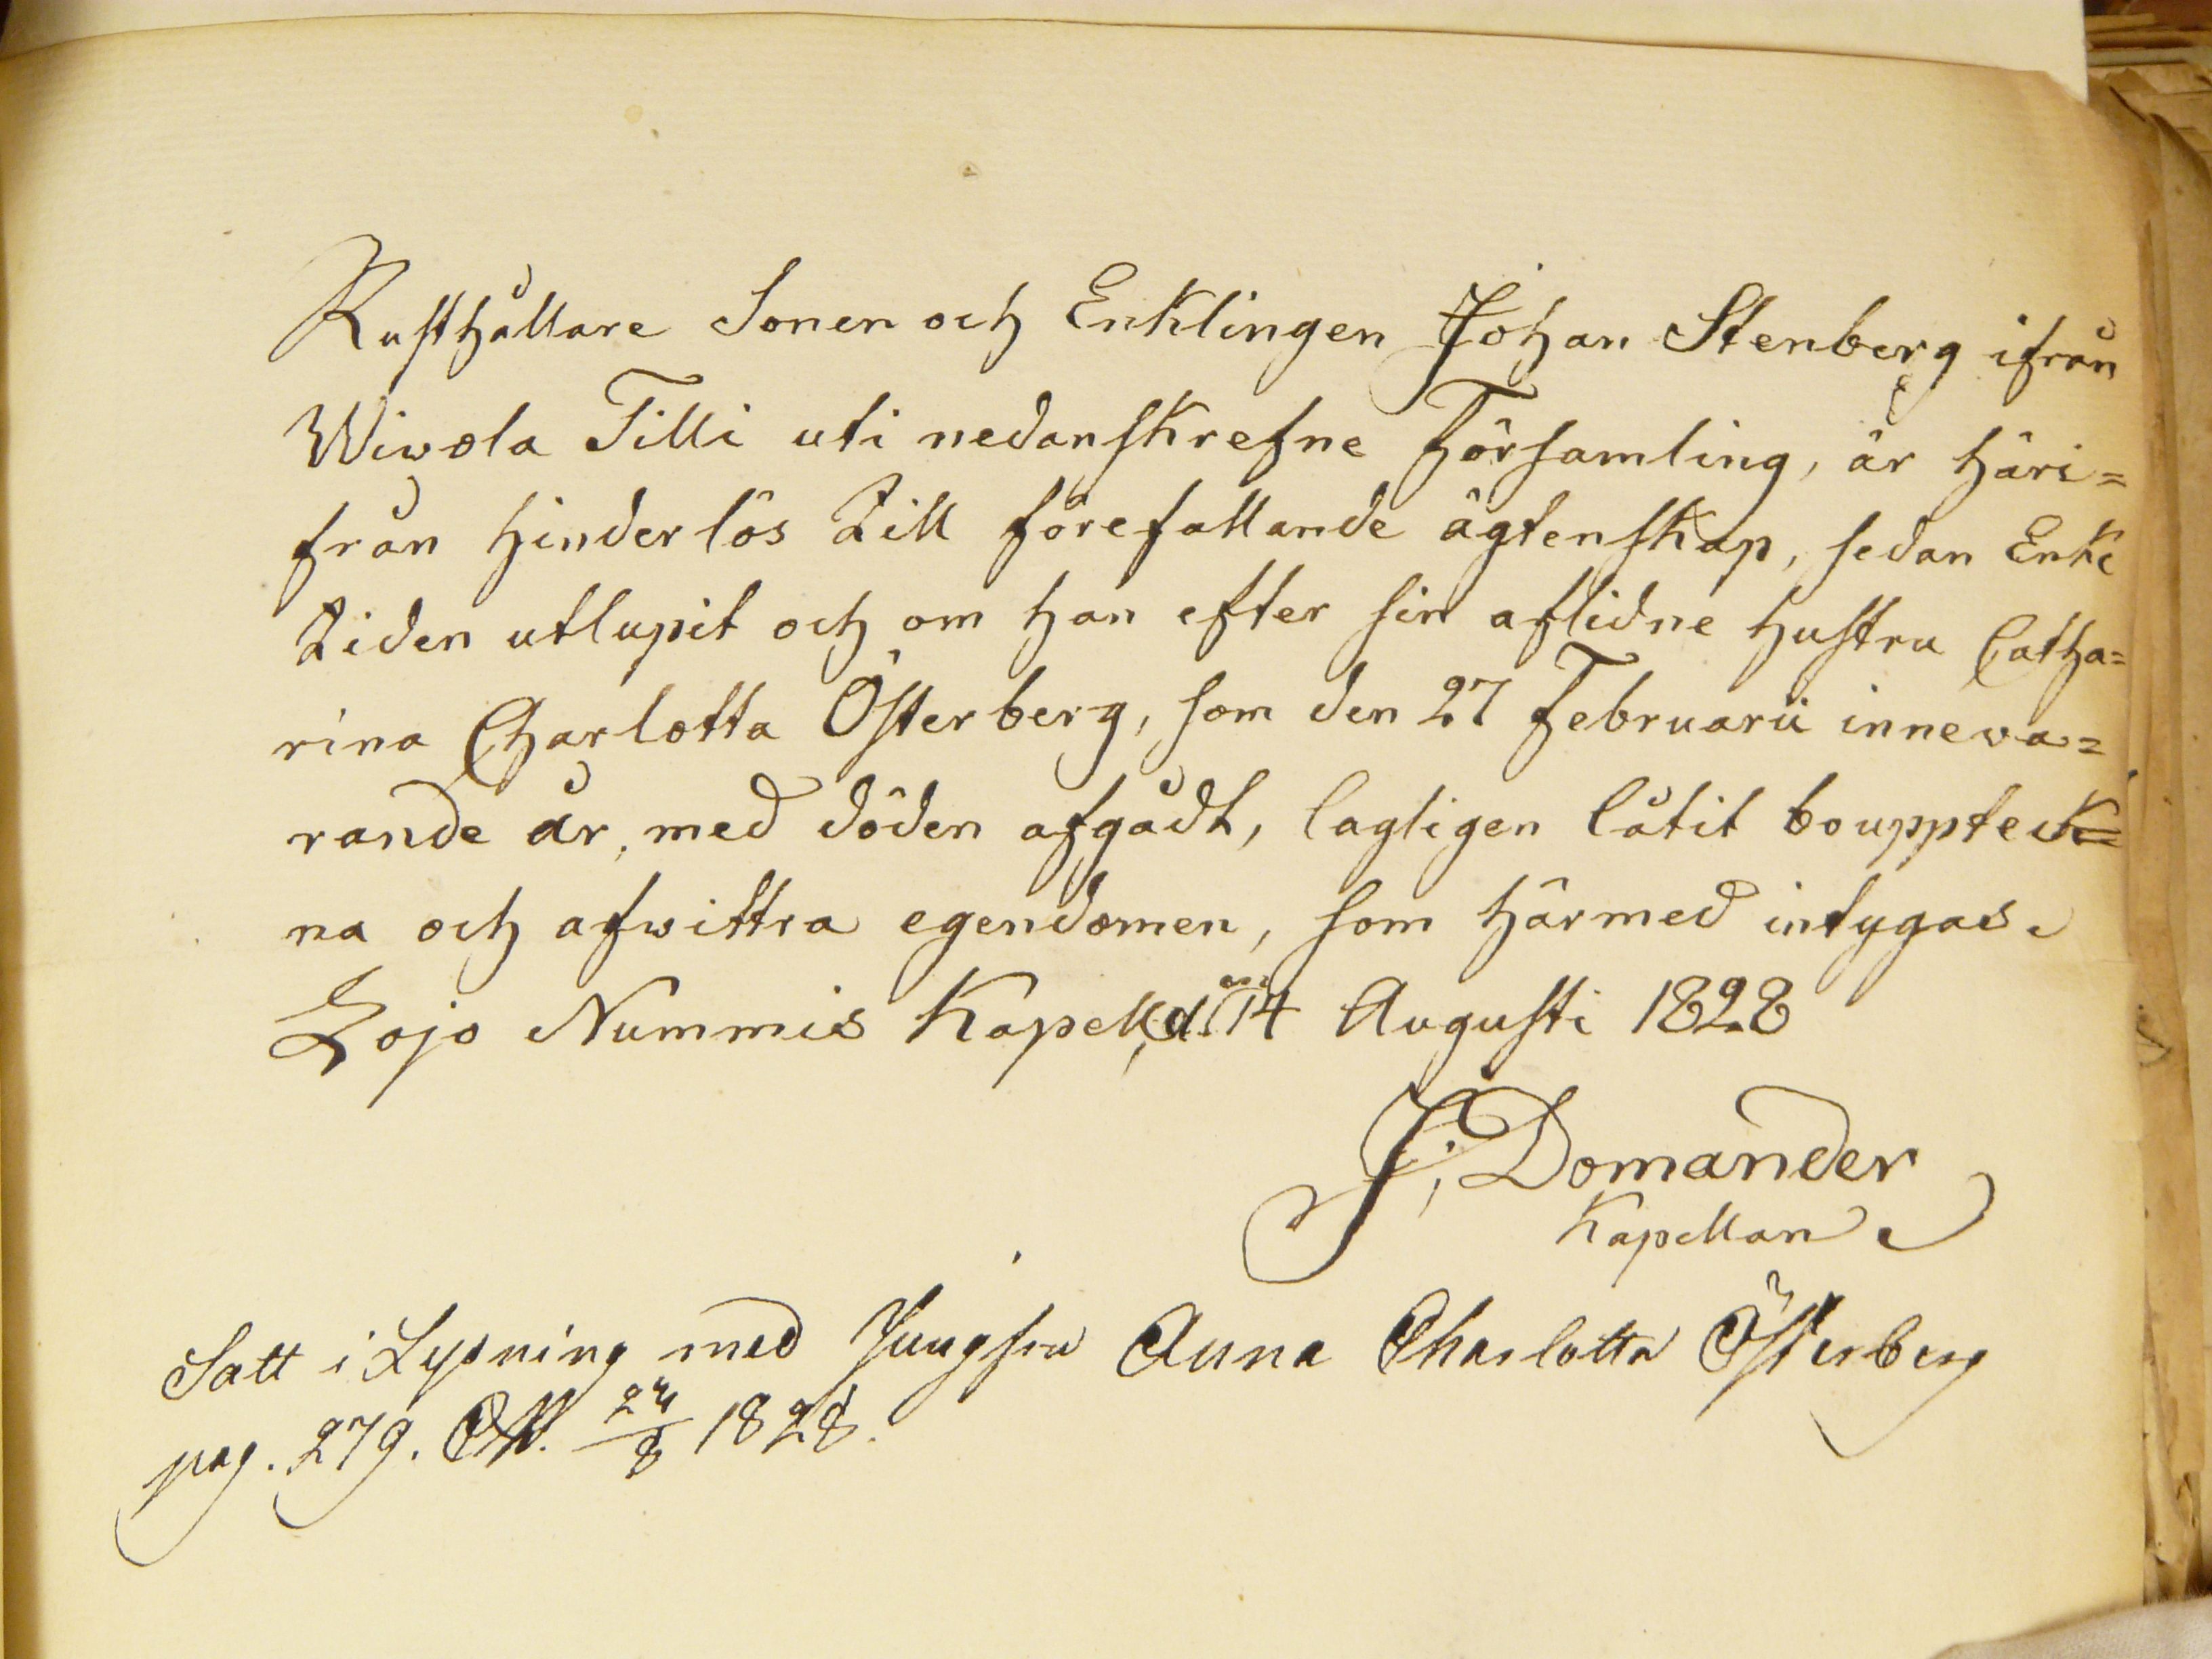 Rusthållare Sonen och Enklingen Johan Stenberg ifrån
Wiwola Tilli uti nedanskrefne Församling, är häri=
från hinderlös till förefallande ägtenskap, sedan Enke
tiden utlupit och om han efter sin aflidne hustru Catha=
rina Charlotta Österberg, som den 27 Februarii inneva=
rande år, med döden afgådt, lagligen låtit bouppteck=
na och afwittra egendomen, som härmed intygas.
Lojo Nummis Kapell, d. 14 Augusti 1828
J. Domander
Kapellan
Satt i Lysning med Jungfru Anna Charlotta Österberg
pag. 279. 24/8 1828.